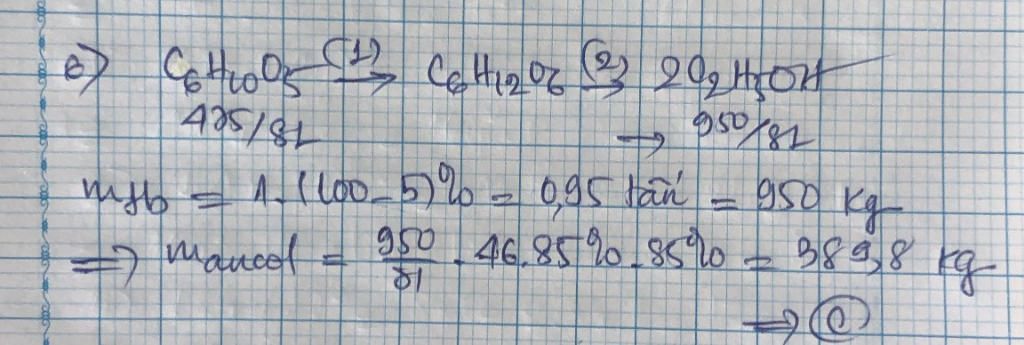 6) C6H10O5 (1)→ C6H12O6 (2)→ 2C2H5OH
475/81 → 950/81
mtb = 1.(100-5)% = 0,95 tấn = 950 kg
=> mancol = 950/81 . 46.85%.85% = 389,8 kg
=> C